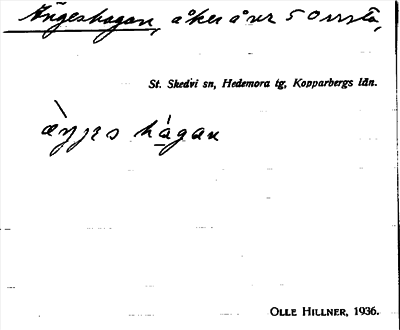 Ängeshagan, åker å nr 5 Orrsta,
St. Skedvi sn, Hedemora tg, Kopparbergs län.
hágan
OLLE HILLNER, 1936.